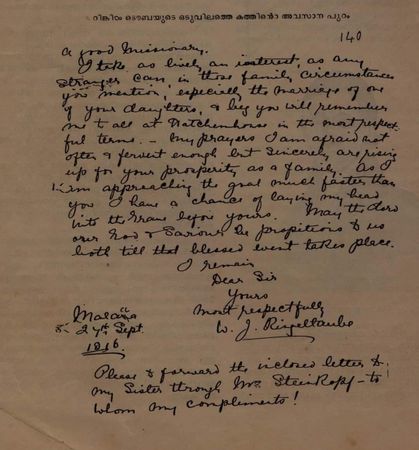 റിങ്കിൾ തൌബയുടെ ഒടുവിലത്തെ കത്തിന്റെ അവസാന പുറം
140
a good Missionary.
I take as lively an interest, as any
stranger can, in those family circumstances
you mention, especially the marriage of one
of your daughters, & beg you will remember
me to all at Hatchamhouse in the most respect-
ful terms. – My prayers I am afraid not
often & fervent enough but sincerely are rising
up for your prosperity as a family. As I
am approaching the goal much faster than
you I have a chance of laying my head
into the Grave before yours. May the Lord
our God & Saviour be propitious to us
both till that blessed event takes place.
I remain
Dear Sir
Yours
most respectfully
W. J. Ringeltaube
27th Sept.
1816.
Please to forward the inclosed letter to
my Sister through Mr. Steinkopf – to
whom my compliments!